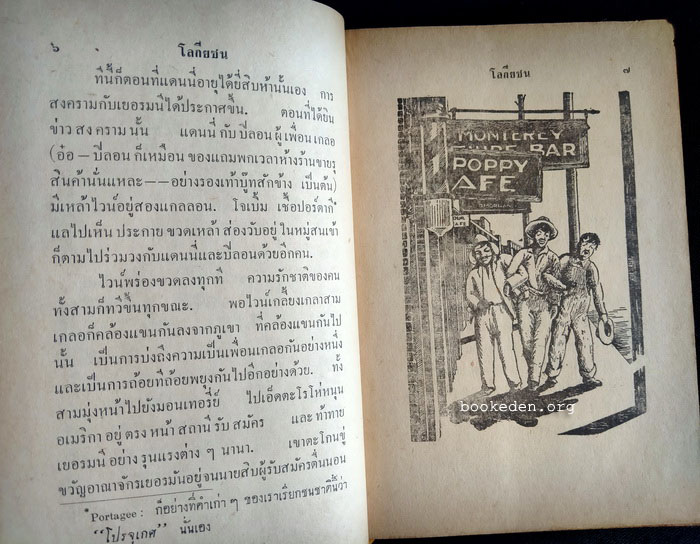 ๖
โลกียชน
ทีนี้ก็ตอนที่แดนนี่อายุได้ยี่สิบห้านั้นเอง การ
สงครามกับเยอรมนีได้ประกาศขึ้น. ตอนที่ได้ยิน
ข่าว สงคราม นั้น แดนนี่ กับ ปีลอน ผู้ เพื่อน เกลอ
(อ้อ — ปีลอน ก็เหมือน ของแถมพกเวลาห้างร้านขายรุ
สินค้านั่นแหละ——อย่างรองเท้าบู๊ทสักข้าง เป็นต้น)
มีเหล้าไวน์อยู่สองแกลลอน. โจเบิ้ม เชื้อปอร์ตากี*
แลไปเห็น ประกาย ขวดเหล้า ส่องวับอยู่ ในหมู่สนเข้า
ก็ตามไปร่วมวงกับแดนนี่และปีลอนด้วยอีกคน.
ไวน์พร่องขวดลงทุกที ความรักชาติของคน
ทั้งสามก็ทวีขึ้นทุกขณะ. พอไวน์เกลี้ยงเกลาสาม
เกลอก็คล้องแขนกันลงจากภูเขา ที่คล้องแขนกันไป
นั้น เป็นการบ่งถึงความเป็นเพื่อนเกลอกันอย่างหนึ่ง
และเป็นการถ้อยทีถ้อยพยุงกันไปอีกอย่างด้วย. ทั้ง
สามมุ่งหน้าไปยังมอนเทอรีย์ ไปเอ็ดตะโรโห่หนุน
อเมริกา อยู่ ตรง หน้า สถานี รับ สมัคร และ ท้าทาย
เยอรมนี อย่าง รุนแรงต่าง ๆ นานา. เขาตะโกนขู่
ขวัญอาณาจักรเยอรมันอยู่จนนายสิบผู้รับสมัครตื่นนอน
*Portagee: ก็อย่างที่คำเก่า ๆ ของเราเรียกชนชาตินี้ว่า
“โปรจุเกศ” นั่นเอง
โลกียชน
๗
MONTEREY
BAR
POPPY
AFE
bookeden.org